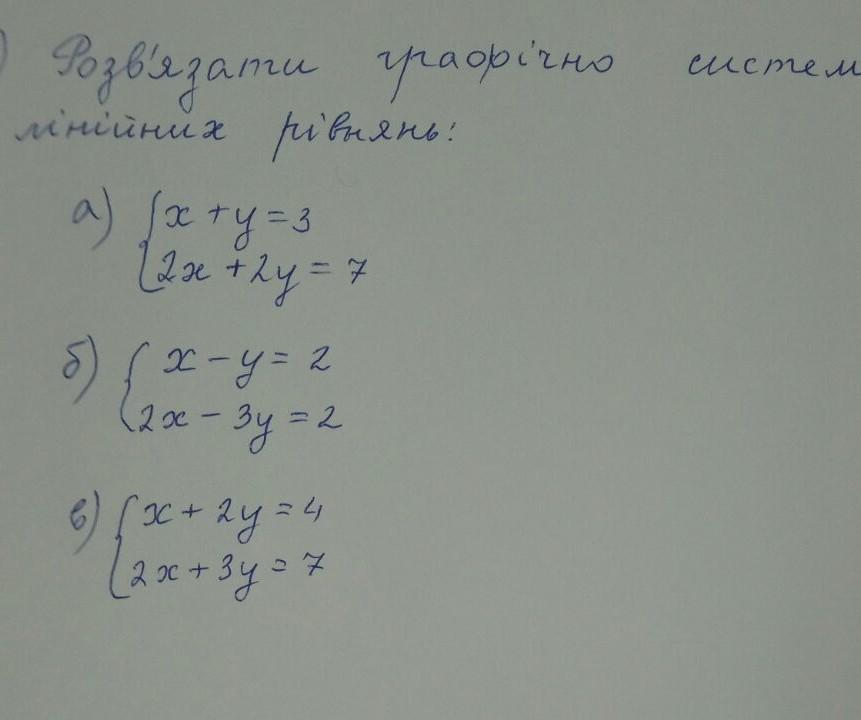 ) Розв'язати графічно систем
лінійних рівнянь:
а) { x + y = 3
2x + 2y = 7
б) { x - y = 2
2x - 3y = 2
в) { x + 2y = 4
2x + 3y = 7